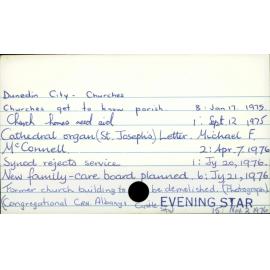 Dunedin City - Churches
Churches get to know parish. 8: Jan 17. 1975.
Church homes need aid 1: Sept 12 1975
Cathedral organ (St. Joseph's) Letter. Michael F.
McConnell. 2: Apr. 7. 1976
Synod rejects service. 1: Jy 20, 1976.
New family-care board planned. 6: Jy 21, 1976
Former church building to be demolished. (Photograph)
(Congregational Cnr. Albany, Castle Sts)
EVENING STAR
15: 2 1976